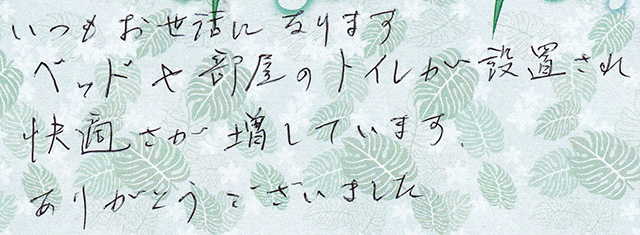 いつもお世話になります
ベッドや部屋のトイレが設置され
快適さが増しています。
ありがとうございました